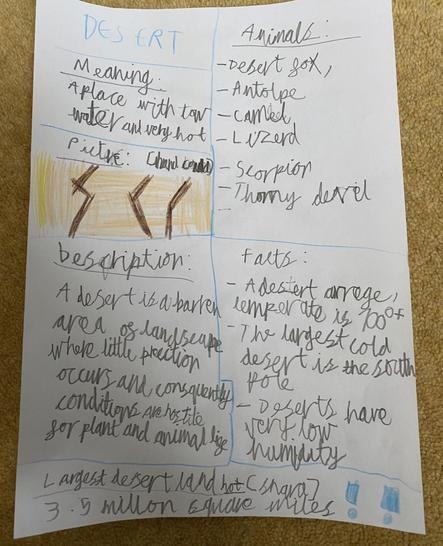 DESERT
Meaning:
A place with low
water and very hot
Picture:
Animals:
- Desert fox,
- Antolpe
- Camel
- Lizerd
- Scorpion
- Thorny devil
Description:
A desert is a barren
area of landscape
where little
occurs and consequently
conditions are hostile
for plant and animal life
Facts:
- A desert
is 100°F
- The largest cold
desert is the south
Pole
- Deserts have
very low
humidity
Largest desert land hot (shara)
3.5 millon square miles !!